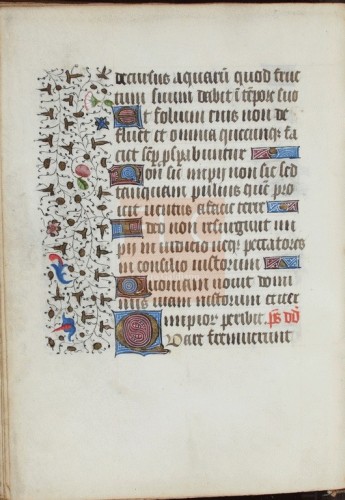 decursus aquarū quod fruc
tum suum dabit ī tēpore suo
Et folium eius non de
fluet et omnia quecunqȝ fa
ciet sēp prospabuntur
Non sic impii non sic sed
tanquam puluis quē pro
icit uentus a facie terre
Ideo non resurgunt im
pii in iudicio neqȝ peccatores
in consilio iustorum
Quoniam nouit domi
nus uiam iustorum et iter
impior peribit. pš dd
Quare fremuerunt